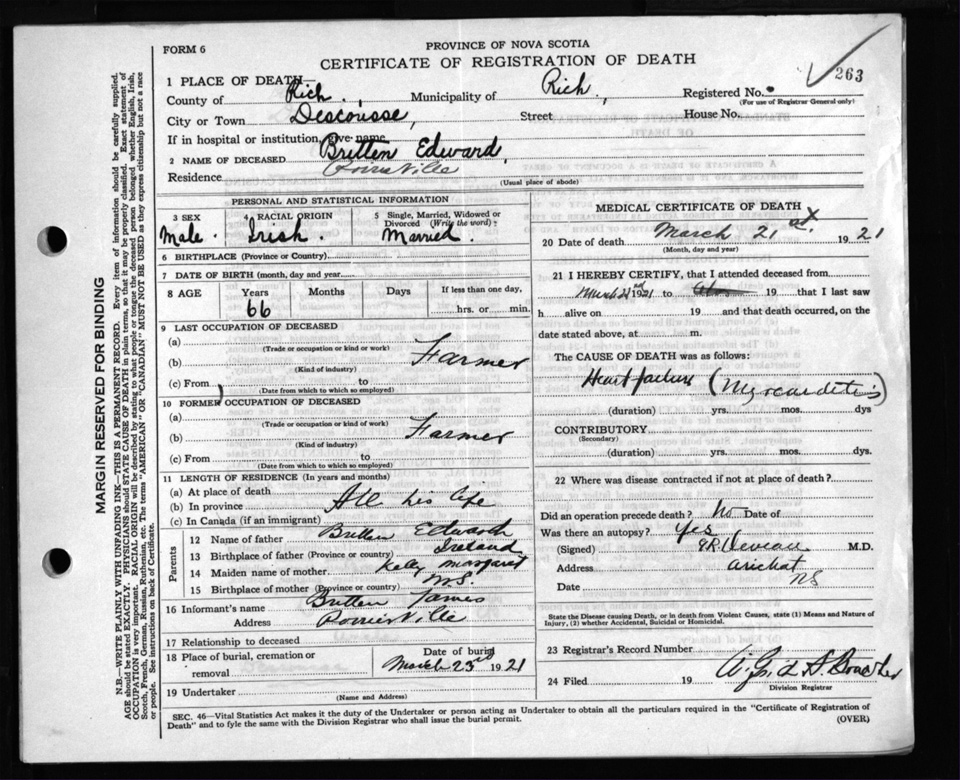 FORM 6
PROVINCE OF NOVA SCOTIA
CERTIFICATE OF REGISTRATION OF DEATH
263
1 PLACE OF DEATH—
County of Rich., Municipality of Rich., Registered No.
(For use of Registrar General only)
City or Town Descousse, Street House No.
If in hospital or institution, give name
2 NAME OF DECEASED Britten Edward,
Residence Poirierville
(Usual place of abode)
PERSONAL AND STATISTICAL INFORMATION
3 SEX Male.
4 RACIAL ORIGIN Irish.
5 Single, Married, Widowed or Divorced (Write the word)? Married.
6 BIRTHPLACE (Province or Country)
7 DATE OF BIRTH (month, day and year)
8 AGE Years Months Days If less than one day,
66 hrs. or min.
9 LAST OCCUPATION OF DECEASED
(a)
(Trade or occupation or kind or work)
(b) Farmer
(Kind of industry)
(c) From to
(Date from which to which so employed)
10 FORMER OCCUPATION OF DECEASED
(a)
(Trade or occupation or kind of work)
(b) Farmer
(Kind of industry)
(c) From to
(Date from which to which so employed)
11 LENGTH OF RESIDENCE (In years and months)
(a) At place of death
(b) In province All his life
(c) In Canada (if an immigrant)
Parents
12 Name of father Britten Edward
13 Birthplace of father (Province or country) Ireland
14 Maiden name of mother Kelly Margaret
15 Birthplace of mother (Province or country) N.S.
16 Informant's name Britten James
Address Poirierville
17 Relationship to deceased
18 Place of burial, cremation or removal
Date of burial
March 23rd 1921
19 Undertaker
(Name and Address)
MEDICAL CERTIFICATE OF DEATH
20 Date of death March 21st. 1921
(Month, day and year)
21 I HEREBY CERTIFY, that I attended deceased from
March 1921 to 19 that I last saw
h alive on 19 and that death occurred, on the
date stated above, at m.
The CAUSE OF DEATH was as follows:
Heart failure (Myocarditis)
(duration) yrs. mos. dys
CONTRIBUTORY
(Secondary)
(duration) yrs. mos. dys.
22 Where was disease contracted if not at place of death?
Did an operation precede death? No Date of
Was there an autopsy? Yes
(Signed) Deveau M.D.
Address Arichat
Date NS
State the Disease causing Death, or in death from Violent Causes, state (1) Means and Nature of
Injury, (2) whether Accidental, Suicidal or Homicidal.
23 Registrar's Record Number
24 Filed 19
Division Registrar
SEC. 46—Vital Statistics Act makes it the duty of the Undertaker or person acting as Undertaker to obtain all the particulars required in the "Certificate of Registration of
Death" and to fyle the same with the Division Registrar who shall issue the burial permit.
(OVER)
MARGIN RESERVED FOR BINDING
N.B.—WRITE PLAINLY WITH UNFADING INK—THIS IS A PERMANENT RECORD. Every item of information should be carefully supplied.
AGE should be stated EXACTLY. PHYSICIANS should STATE CAUSE OF DEATH in plain terms, so that it may be properly classified. Exact statement of
OCCUPATION is very important. RACIAL ORIGIN will be described by stating to what people or tongue the deceased person belonged whether English, Irish,
Scotch, French, German, Russian, Ruthenian, etc. The terms "AMERICAN" OR "CANADIAN" MUST NOT BE USED as they express citizenship but not a race
or people. See instructions on back of Certificate.